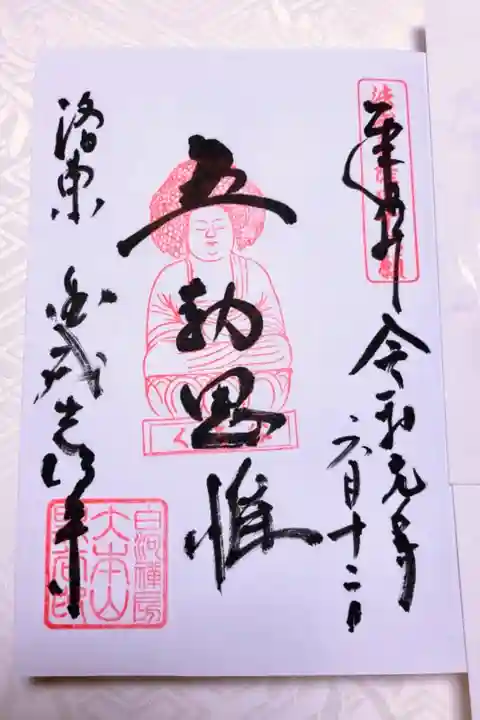 奉拝
令和元年
六月十二日
五劫思惟
洛東 金戒光明寺
白河禅房
大本山